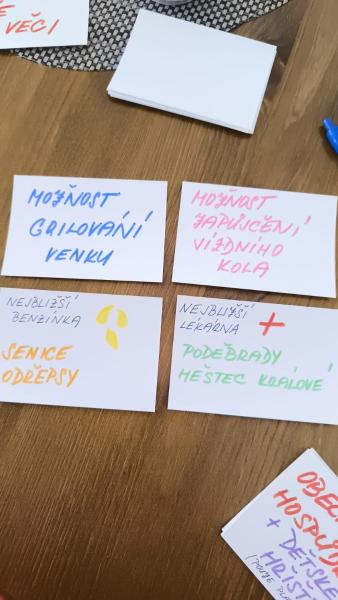 VĚCI
MOŽNOST
GRILOVÁNÍ
VENKU
MOŽNOST
ZAPŮJČENÍ
VÍZDNÍHO
KOLA
NEJBLIŽŠÍ
BENZÍNKA
SENICE
ODŘEPSY
NEJBLIŽŠÍ
LÉKÁRNA
PODĚBRADY
MĚSTEC KRÁLOVÉ
+ DĚTSKÉ